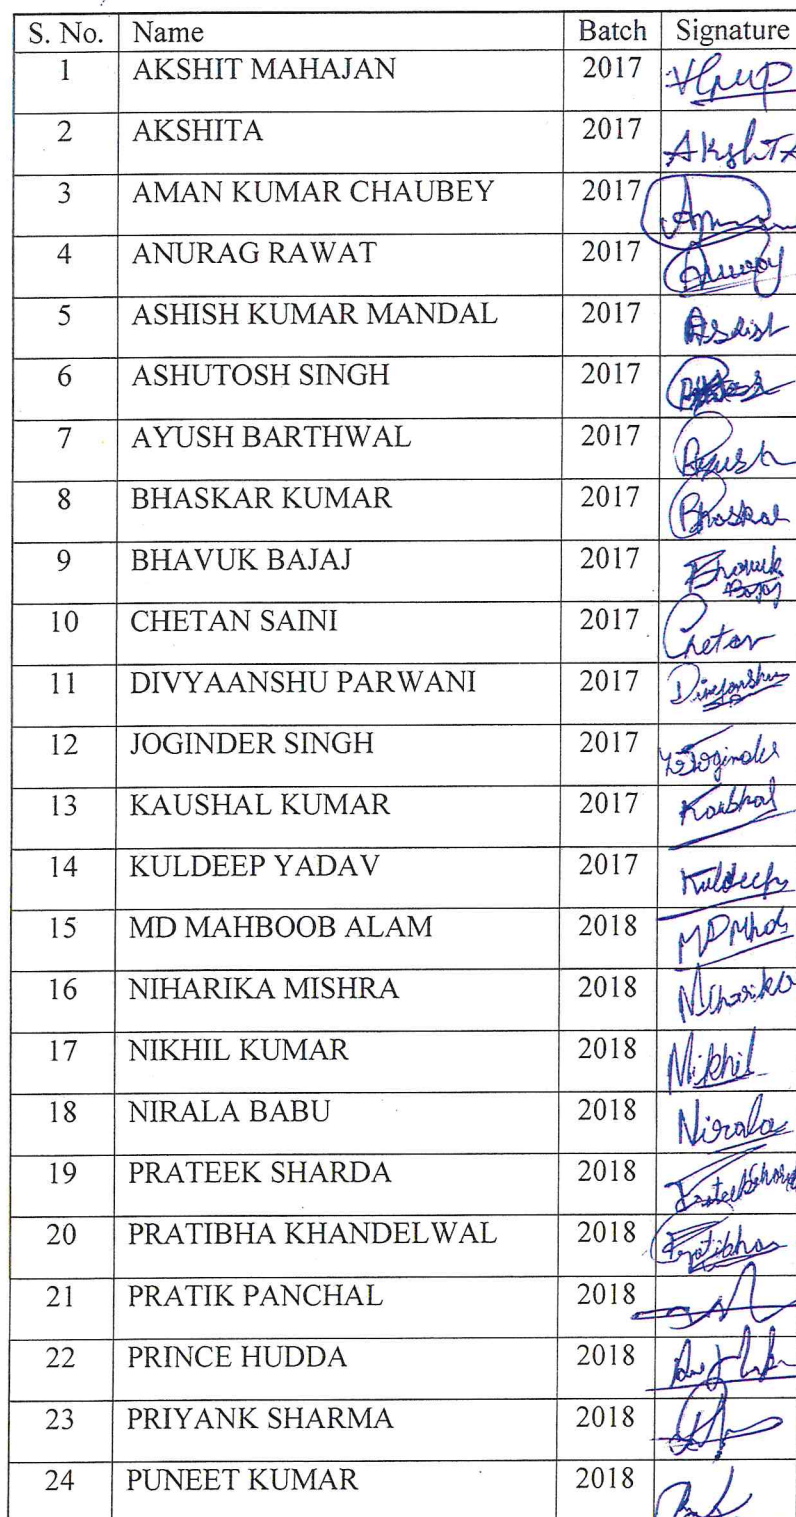 S. No. Name Batch Signature
1 AKSHIT MAHAJAN 2017
2 AKSHITA 2017 AkshiTA
3 AMAN KUMAR CHAUBEY 2017
4 ANURAG RAWAT 2017 Anurag
5 ASHISH KUMAR MANDAL 2017 Ashish
6 ASHUTOSH SINGH 2017
7 AYUSH BARTHWAL 2017 Ayush
8 BHASKAR KUMAR 2017 Bhaskar
9 BHAVUK BAJAJ 2017 Bhavuk Bajaj
10 CHETAN SAINI 2017 Chetan
11 DIVYAANSHU PARWANI 2017 Divyanshu
12 JOGINDER SINGH 2017 Joginder
13 KAUSHAL KUMAR 2017 Kaushal
14 KULDEEP YADAV 2017 Kuldeep
15 MD MAHBOOB ALAM 2018
16 NIHARIKA MISHRA 2018 Niharika
17 NIKHIL KUMAR 2018 Nikhil
18 NIRALA BABU 2018 Nirala
19 PRATEEK SHARDA 2018 Prateek Sharda
20 PRATIBHA KHANDELWAL 2018 Pratibha
21 PRATIK PANCHAL 2018
22 PRINCE HUDDA 2018
23 PRIYANK SHARMA 2018
24 PUNEET KUMAR 2018